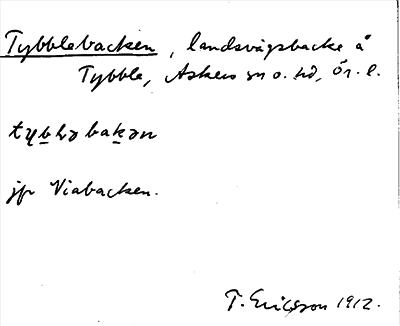 Tybblebacken, landsvägsbacke å
Tybble, Askers sn o. hd, Ör. l.
jfr Viabacken.
T. Ericsson 1912.